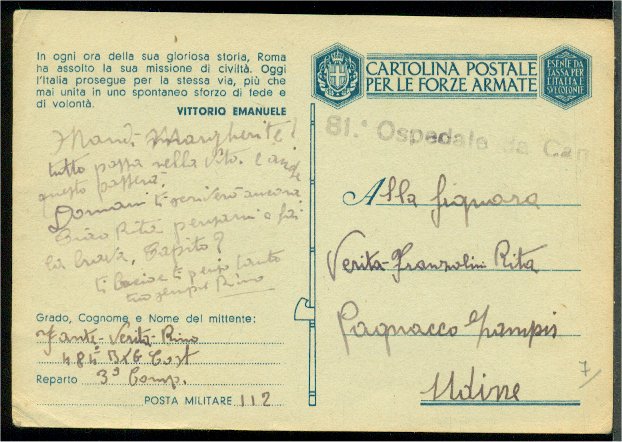 In ogni ora della sua gloriosa storia, Roma
ha assolto la sua missione di civiltà. Oggi
l'Italia prosegue per la stessa via, più che
mai unita in uno spontaneo sforzo di fede e
di volontà.
VITTORIO EMANUELE
Mandi Margherite!
tutto passa nella vita. e anche
questo passerà.
Domani ti scriverò ancora
Ciao Rita pensami e fai
la brava. Capito?
ti bacio e ti penso tanto
tuo sempre Rino
Grado, Cognome e Nome del mittente:
Fante Verita Rino
485 Btg Cost
Reparto 3ª Comp.
POSTA MILITARE 112
CARTOLINA POSTALE
PER LE FORZE ARMATE
ESENTE DA
TASSA PER
L'ITALIA E
SVE COLONIE
81.° Ospedale da Cam
Alla Signora
Verita-Franzolini Rita
Pagnacco Zampis
Udine
7/